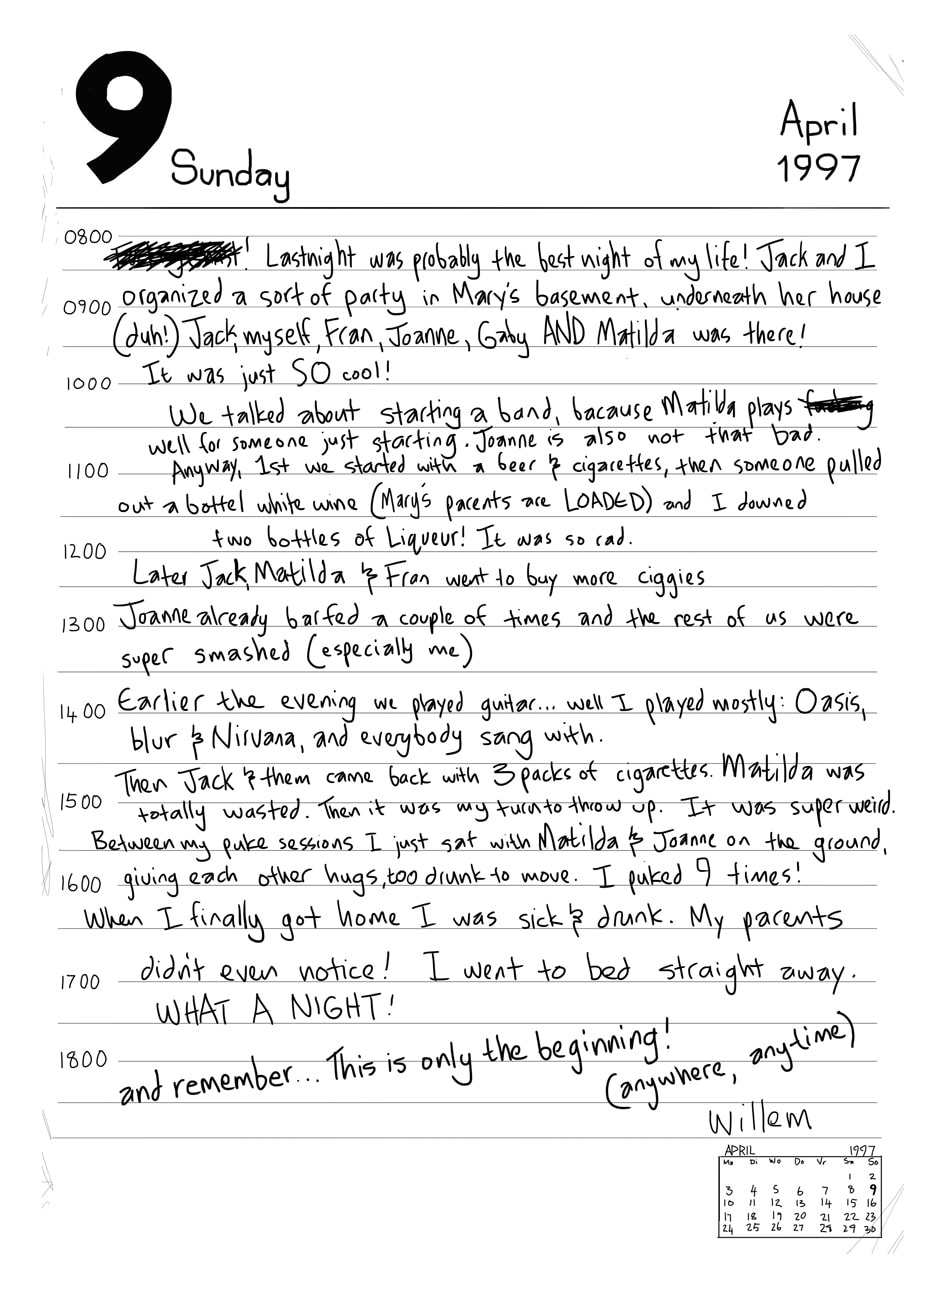 9 Sunday
April
1997
0800
! Lastnight was probably the best night of my life! Jack and I
0900
organized a sort of party in Mary's basement, underneath her house
(duh!) Jack, myself, Fran, Joanne, Gaby AND Matilda was there!
1000
It was just SO cool!
We talked about starting a band, bacause Matilda plays
well for someone just starting. Joanne is also not that bad.
1100
Anyway, 1st we started with a beer & cigarettes, then someone pulled
out a bottel white wine (Mary's parents are LOADED) and I downed
1200
two bottles of Liqueur! It was so rad.
Later Jack, Matilda & Fran went to buy more ciggies
1300
Joanne already barfed a couple of times and the rest of us were
super smashed (especially me)
1400
Earlier the evening we played guitar... well I played mostly: Oasis,
blur & Nirvana, and everybody sang with.
Then Jack & them came back with 3 packs of cigarettes. Matilda was
1500
totally wasted. Then it was my turn to throw up. It was super weird.
Between my puke sessions I just sat with Matilda & Joanne on the ground,
1600
giving each other hugs, too drunk to move. I puked 9 times!
When I finally got home I was sick & drunk. My parents
1700
didn't even notice! I went to bed straight away.
WHAT A NIGHT!
1800
and remember... This is only the beginning!
(anywhere, anytime)
Willem
APRIL 1997
Ma Di Wo Do Vr Sa So
1 2
3 4 5 6 7 8 9
10 11 12 13 14 15 16
17 18 19 20 21 22 23
24 25 26 27 28 29 30